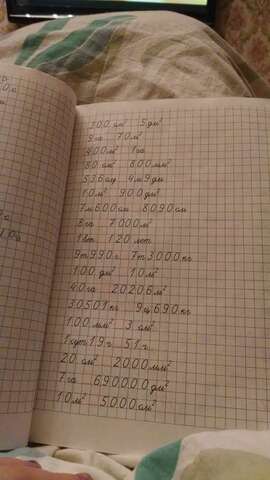 300 см² 5 дм²
9 га 70 м²
800 м² 1 га
80 см² 800 мм²
536 см 4 м 9 дм
10 м² 900 дм²
7 м 600 см 8090 см
8 га 7000 м²
18 т 120 лет
9 т 990 г 7 т 3000 кг
100 дм² 10 м²
40 га 20206 м²
30501 кг 9 ц 690 кг
100 мм² 3 см²
1 сут 19 ч 51 ч
20 см² 2000 мм²
7 га 690000 дм²
10 м² 5000 см²